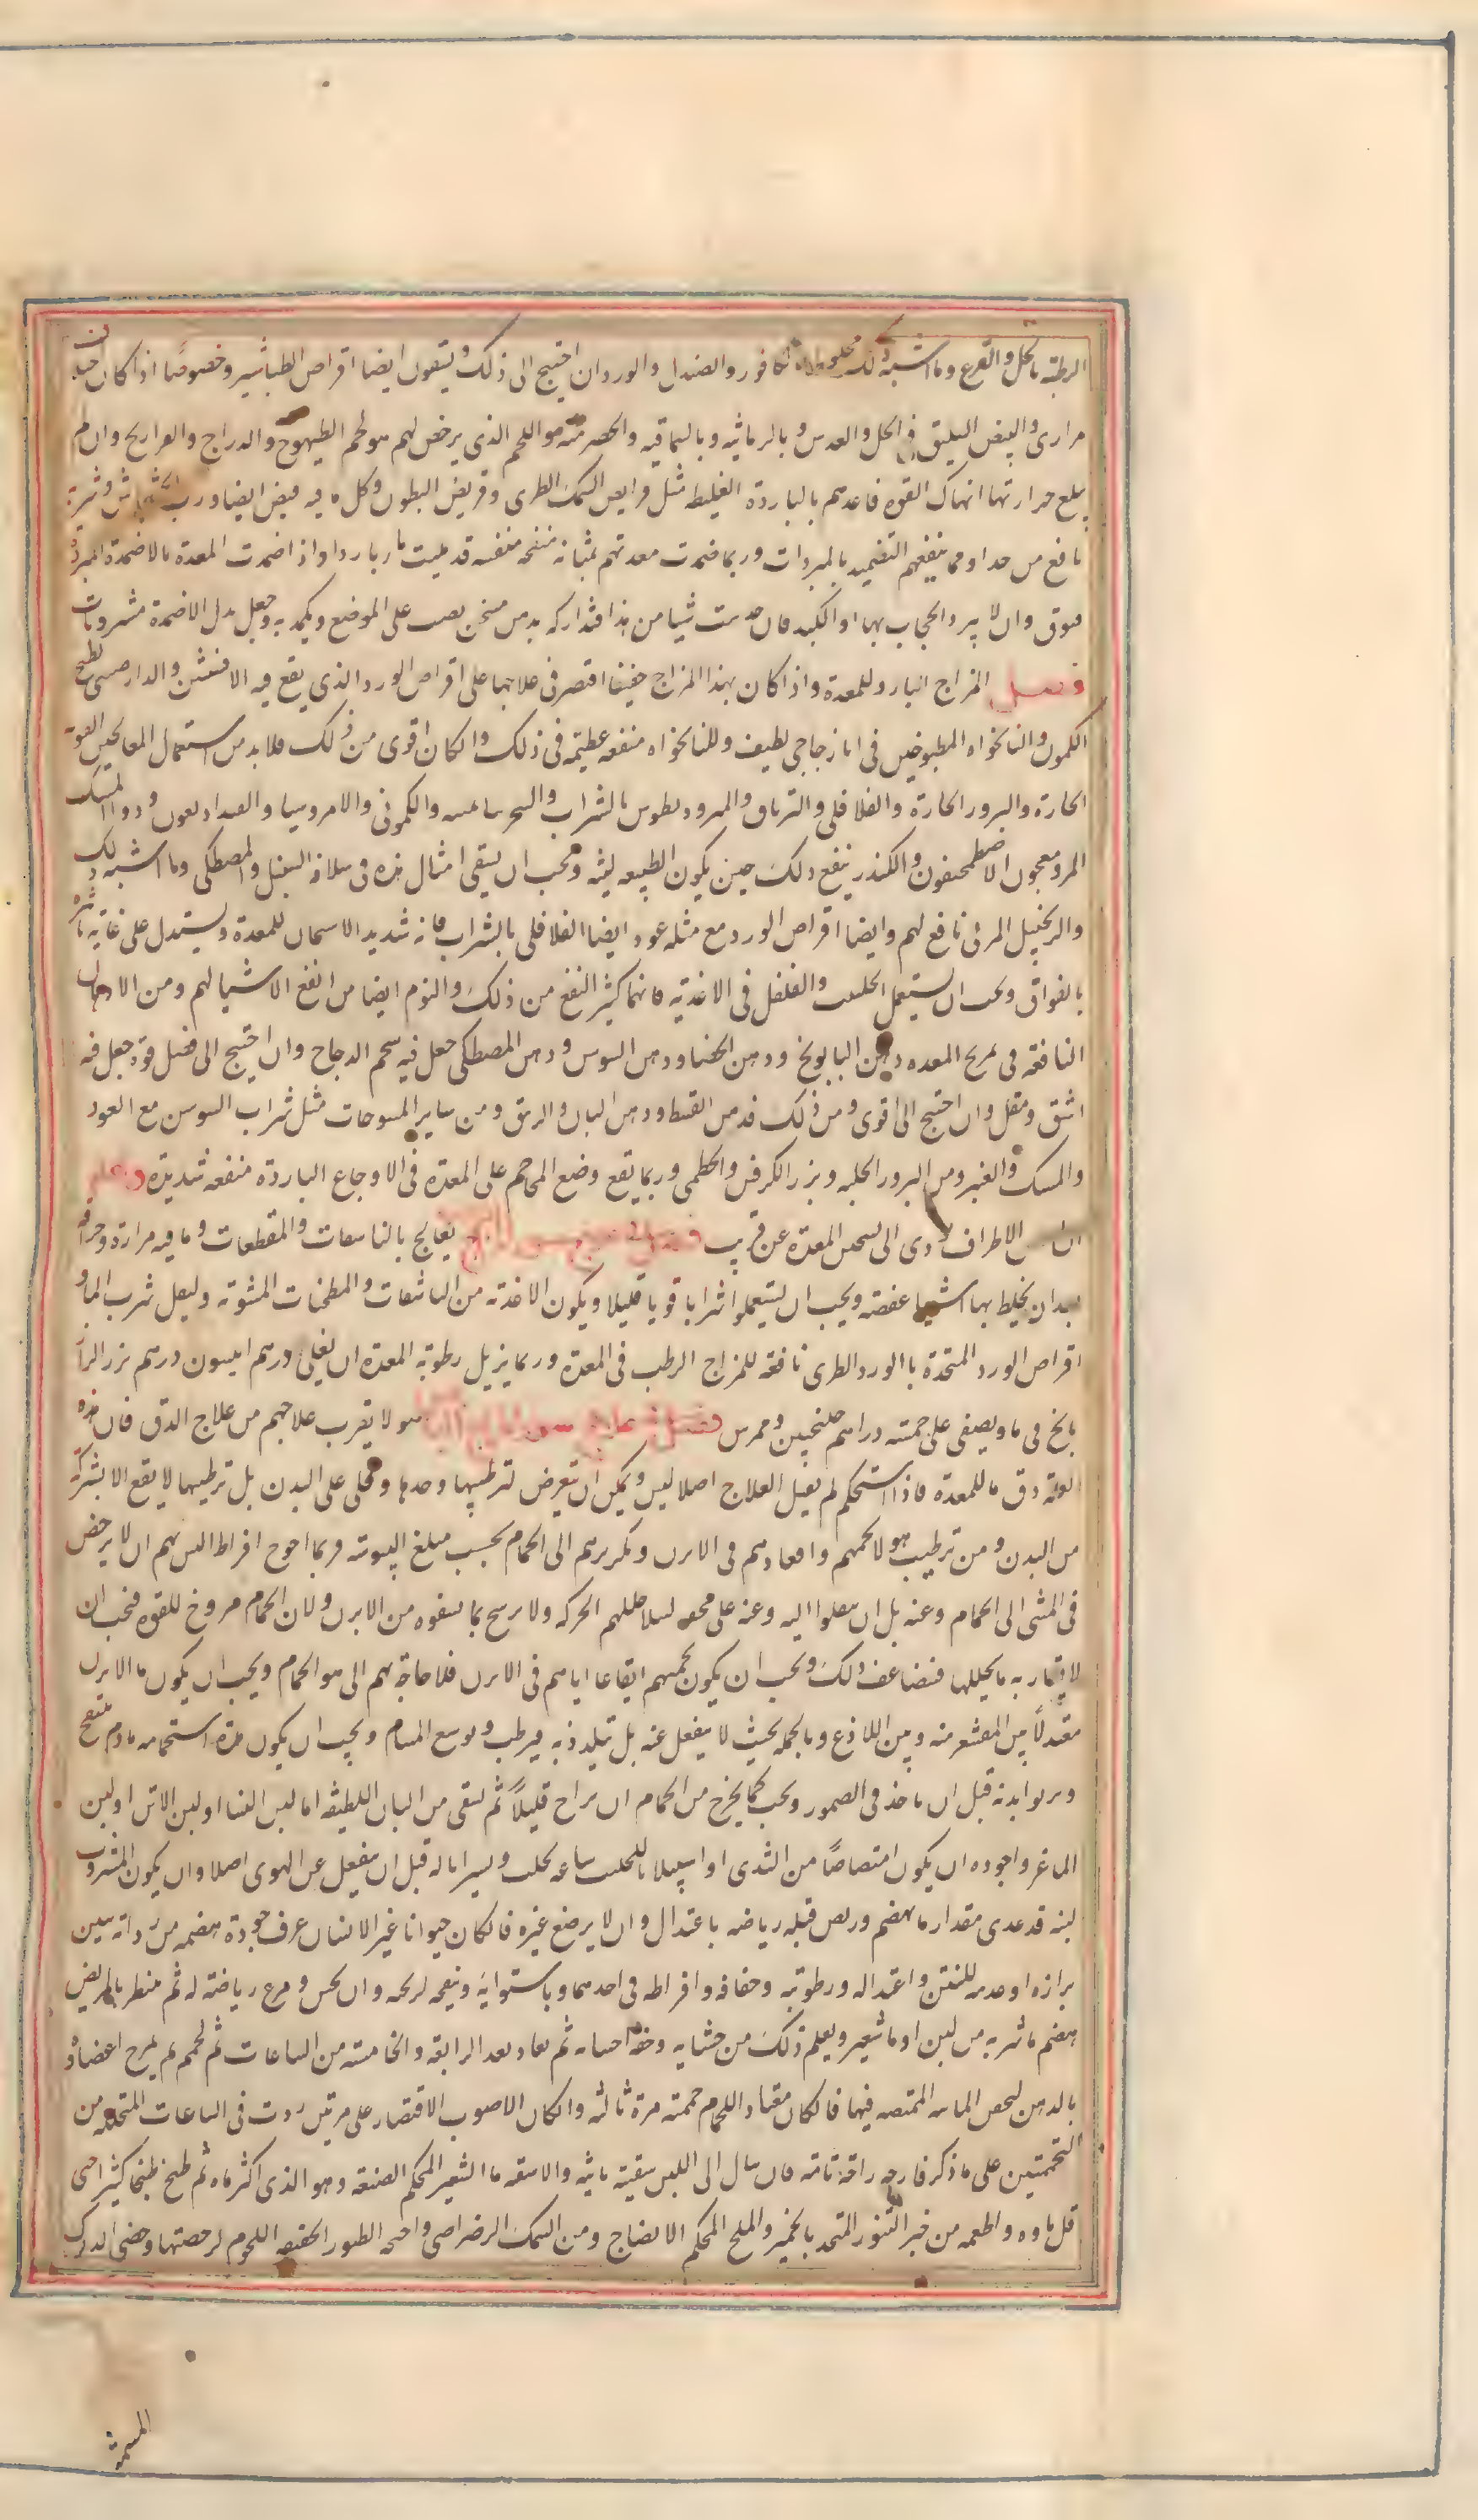 الرطبة بالخل والقرع وما اشبه ذلك مخلوطا بالكافور والصندل والورد ان احتيج الى ذلك ويسقون ايضا اقراص الطباشير وخصوصًا اذا كان
مرارى والبيض السليق فى الخل والعدس وبالرمانيه وبالسماقيه والحصرميه واللحم الذى يرخص لهم هو لحم الطيهوج والدراج والفراريج وان لم
يبلغ حرارتها انهاك القوه فاغذهم بالباردة الغليظه مثل قرايص السمك الطرى وقريص البطون وكل ما فيه قبض ايضا ورب
نافع من جدا ومما ينفعهم التضميد بالمبردات وربما ضمدت معدتهم بمثانه منفخه قد مليت ما باردا واذا ضمدت المعدة بالاضمدة المبرده
فتوق وان لا يبرد الحجاب بها او الكبد فان حدست شيا من هذا فتداركه بدهن مسخن يصب على الموضع ويكمد به وجعل بدل الاضمدة مشروبات
فصل المزاج البارد للمعدة واذا كان بهذا المزاج خفيفا اقتصر فى علاجها على اقراص الورد الذى يقع فيه الافسنتين والدارصينى
الكمون والنانخواه المطبوخين فى انا زجاجى لطيف وللنانخواه منفعه عظيمه فى ذلك وان كان اقوى من ذلك فلا بد من استعمال المعاجين القويه
الحارة والبزور الحارة والفلافلى والترياق والمرود يطوس بالشراب والكمونى والامروسيا ودوا المسك
المر ومعجون الاصطمحيقون والكندر ينفع ذلك حين يكون الطبيعه لينه ويجب ان يسقى امثال هذه فى سلاقه السنبل والمصطكى وما اشبه ذلك
والزنجبيل المربى نافع لهم وايضا اقراص الورد مع مثله عود ايضا الفلافلى بالشراب فانه شديد الاسخان للمعدة ويستدل على غايه تاثيره
بالفواق ويجب ان يستعمل الحلتيت والفلفل فى الاغذيه فانهما كثير النفع من ذلك والثوم ايضا من انفع الاشيا لهم ومن الادهان
النافعه فى تمريخ المعده دهن البابونج ودهن الحنا ودهن السوس ودهن المصطكى جعل فيه شحم الدجاج وان احتيج الى فضل قوة جعل فيه
اشق ومقل وان احتيج الى اقوى من ذلك فدهن القسط ودهن البان والزنبق ومن ساير المسوحات مثل شراب السوسن مع العود
والمسك والعنبر ومن البزور الحلبه وبزر الكرفس والخطمى وربما ينفع وضع المحاجم على المعده فى الاوجاع الباردة منفعه شديدة واعلم
ان الاطراف يودى الى تسخين المعدة عن قريب يعالج بالناشفات والمقطعات وما فيه مرارة وحرافه
بعد ان يخلط بها اشيا عفصه ويجب ان يستعملوا شرابا قويا قليلا ويكون الاغذيه من الناشفات والمطجنات المشويه وليقل شرب الما و
اقراص الورد المتخذة بالورد الطرى نافعه للمزاج الرطب فى المعدة وربما يزيل رطوبه المعدة ان يغلى درهم انيسون درهم بزر الرازيانج
فى ما ويصفى على خمسه دراهم جلنجبين ويمرس هولا يقرب علاجهم من علاج الدق فان هذه
العله دق ما للمعدة فاذا استحكم لم يقبل العلاج اصلا ليس ويمكن ان يتعرض لترطيبها وحدها ويخلى على البدن بل ترطيبها لا يقع الا بشركه
من البدن ومن ترطيب هولا تحميمهم واقعادهم فى الابزن وتكريرهم الى الحمام بحسب مبلغ اليبوسه وربما احوج افراط اليبس بهم ان لا يرخص
فى المشى الى الحمام وعنه بل ان ينقلوا اليه وعنه على محفه ليلا تحللهم الحركه ولا يرشح بما يستفيدوه من الابزن ولان الحمام مرخ للقوه فيجب ان
لا يقارنه ما يحللها فتضاعف ذلك ويجب ان يكون تحميمهم ايقاعا اياهم فى الابزن فلا حاجه بهم الى هوا الحمام ويجب ان يكون ما الابزن
معتدلاً بين المقشعر منه وبين اللاذع وبالجمله بحيث لا ينفعل عنه بل يتلذذ به فيرطب ويوسع المسام ويجب ان يكون مدة استحمامه مادام ينتفخ
ويربو ابدنه قبل ان ياخذ فى الضمور ويجب كما يخرج من الحمام ان يراح قليلاً ثم يسقى من البان اللطيفه اما لبن النسا او لبن الاتن او لبن
الماعز واجوده ان يكون امتصاصًا من الثدى او استقبالا للحليب ساعه يحلب ويسيرا ماله قبل ان ينفعل عن الهوى اصلا وان يكون المشروب
لبنه قد غذى مقدار ما يهضم وريض قبله رياضه باعتدال وان لا يرضع غيره فان كان حيوانا غير الانسان عرف جودة هضمه من
برازه او عدمه للنتن واعتداله ورطوبته وجفافه وافراطه فى احدهما وباستوايه ونفخه لريحه وان يحس ويمرغ رياضه له ثم ينتظر بالمريض
هضم ما شربه من لبن او ما شعير ويعلم ذلك من جشايه وخفه احشايه ثم يعاد بعد الرابعه والخامسه من الساعات ثم يحمم ثم يمرخ اعضاوه
بالدهن ليحقن المائيه الممتصه فيها فان كان معتاد اللحمام حممته مرة ثالثه وان كان الاصوب الاقتصار على مرتين زدت فى الساعات المتخلله من
التحميمين على ما ذكر فارحه راحة تامه فان مال الى اللبن سقيته ثانيه والا سقه ما الشعير المحكم الصنعه وهو الذى اكثر ماوه ثم طبخ طبخا كثيرا حتى
قل ماوه واطعمه من خبز التنور المتخذ بالخمير والملح المحكم الانضاج ومن السمك الرضراضى واجنحه الطيور الخفيفه اللحوم لرخصتها وخصى الديوك
المسمنه